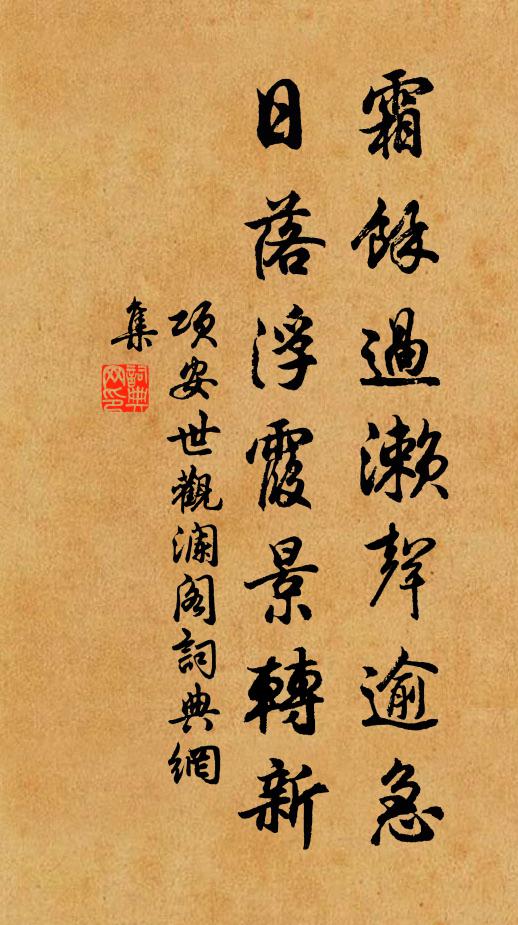 霜餘過瀨聲逾急
日落浮霞景轉新
項安世觀瀾閣詞典網
集
詞典
网印